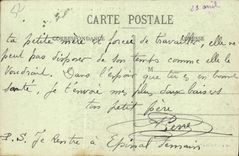 23 avril
CARTE POSTALE
CORRESPONDANCE
ta petite mère est forcée de travailler, elle ne
peut pas disposer de son temps comme elle le
voudrait. Dans l'espoir que tu es en bonne
santé, je t'envoie mes plus doux baisers
ton petit père
René
P.S. Je rentre à Epinal demain